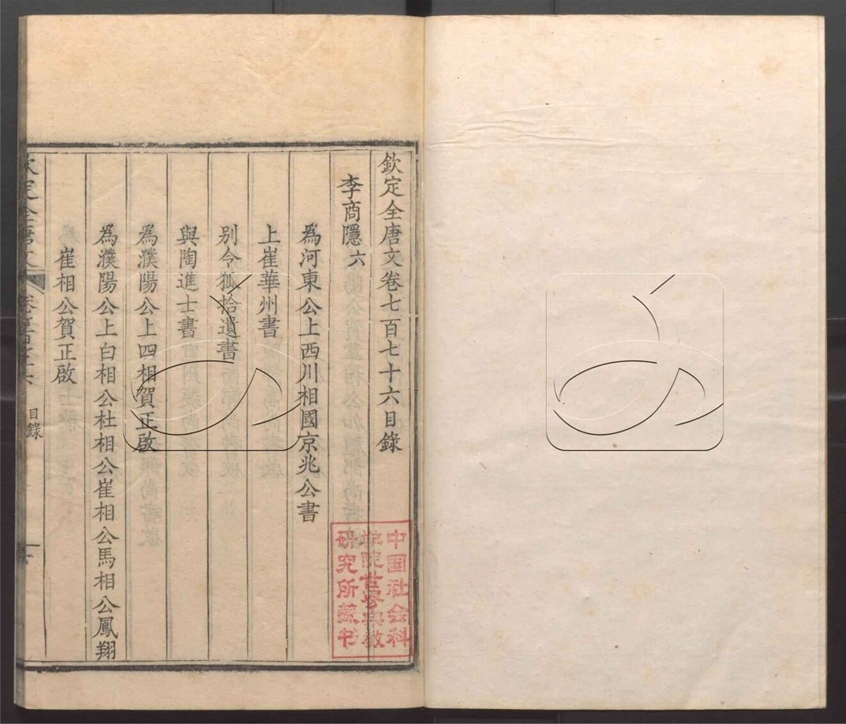 欽定全唐文卷七百七十六目錄
李商隱六
為河東公上西川相國京兆公書
上崔華州書
别令狐拾遺書
與陶進士書
為濮陽公上四相賀正啟
為濮陽公上白相公杜相公崔相公馬相公鳳翔
崔相公賀正啟
目錄
中国社会科
学院世界宗教
研究所藏书